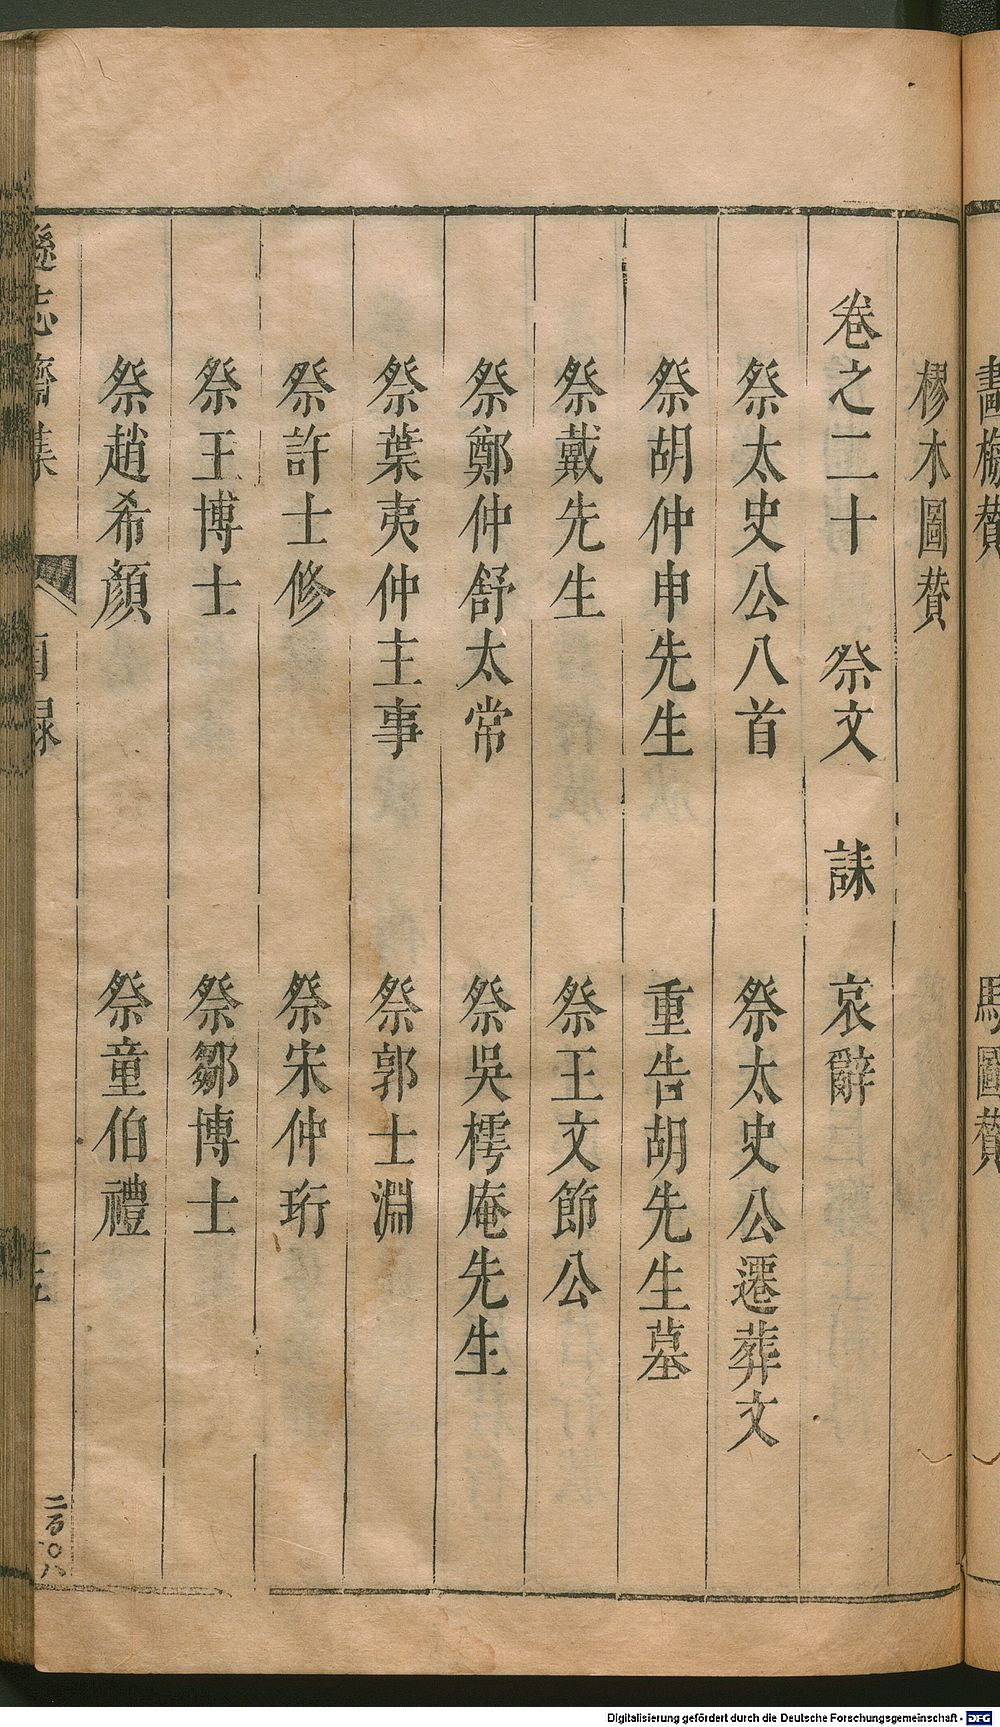 畫梅贊
圖贊
樛木圖贊
卷之二十 祭文 誄 哀辭
祭太史公八首 祭太史公遷葬文
祭胡仲申先生 重告胡先生墓
祭戴先生 祭王文節公
祭鄭仲舒太常 祭吳樗庵先生
祭葉夷仲主事 祭郭士淵
祭許士修 祭宋仲珩
祭王博士 祭鄒博士
祭趙希顏 祭童伯禮
遜志齋集 目錄
Digitalisierung gefördert durch die Deutsche Forschungsgemeinschaft - DFG